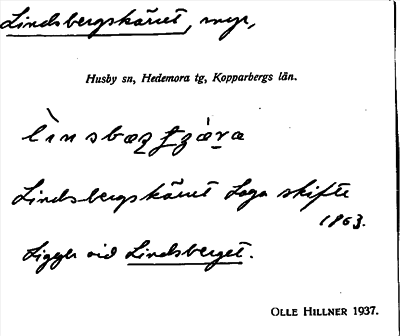 Lindsbergskärret, myr,
Husby sn, Hedemora tg, Kopparbergs län.
Lindsbergskärret Laga skifte
1863.
Ligger vid Lindsberget.
OLLE HILLNER 1937.